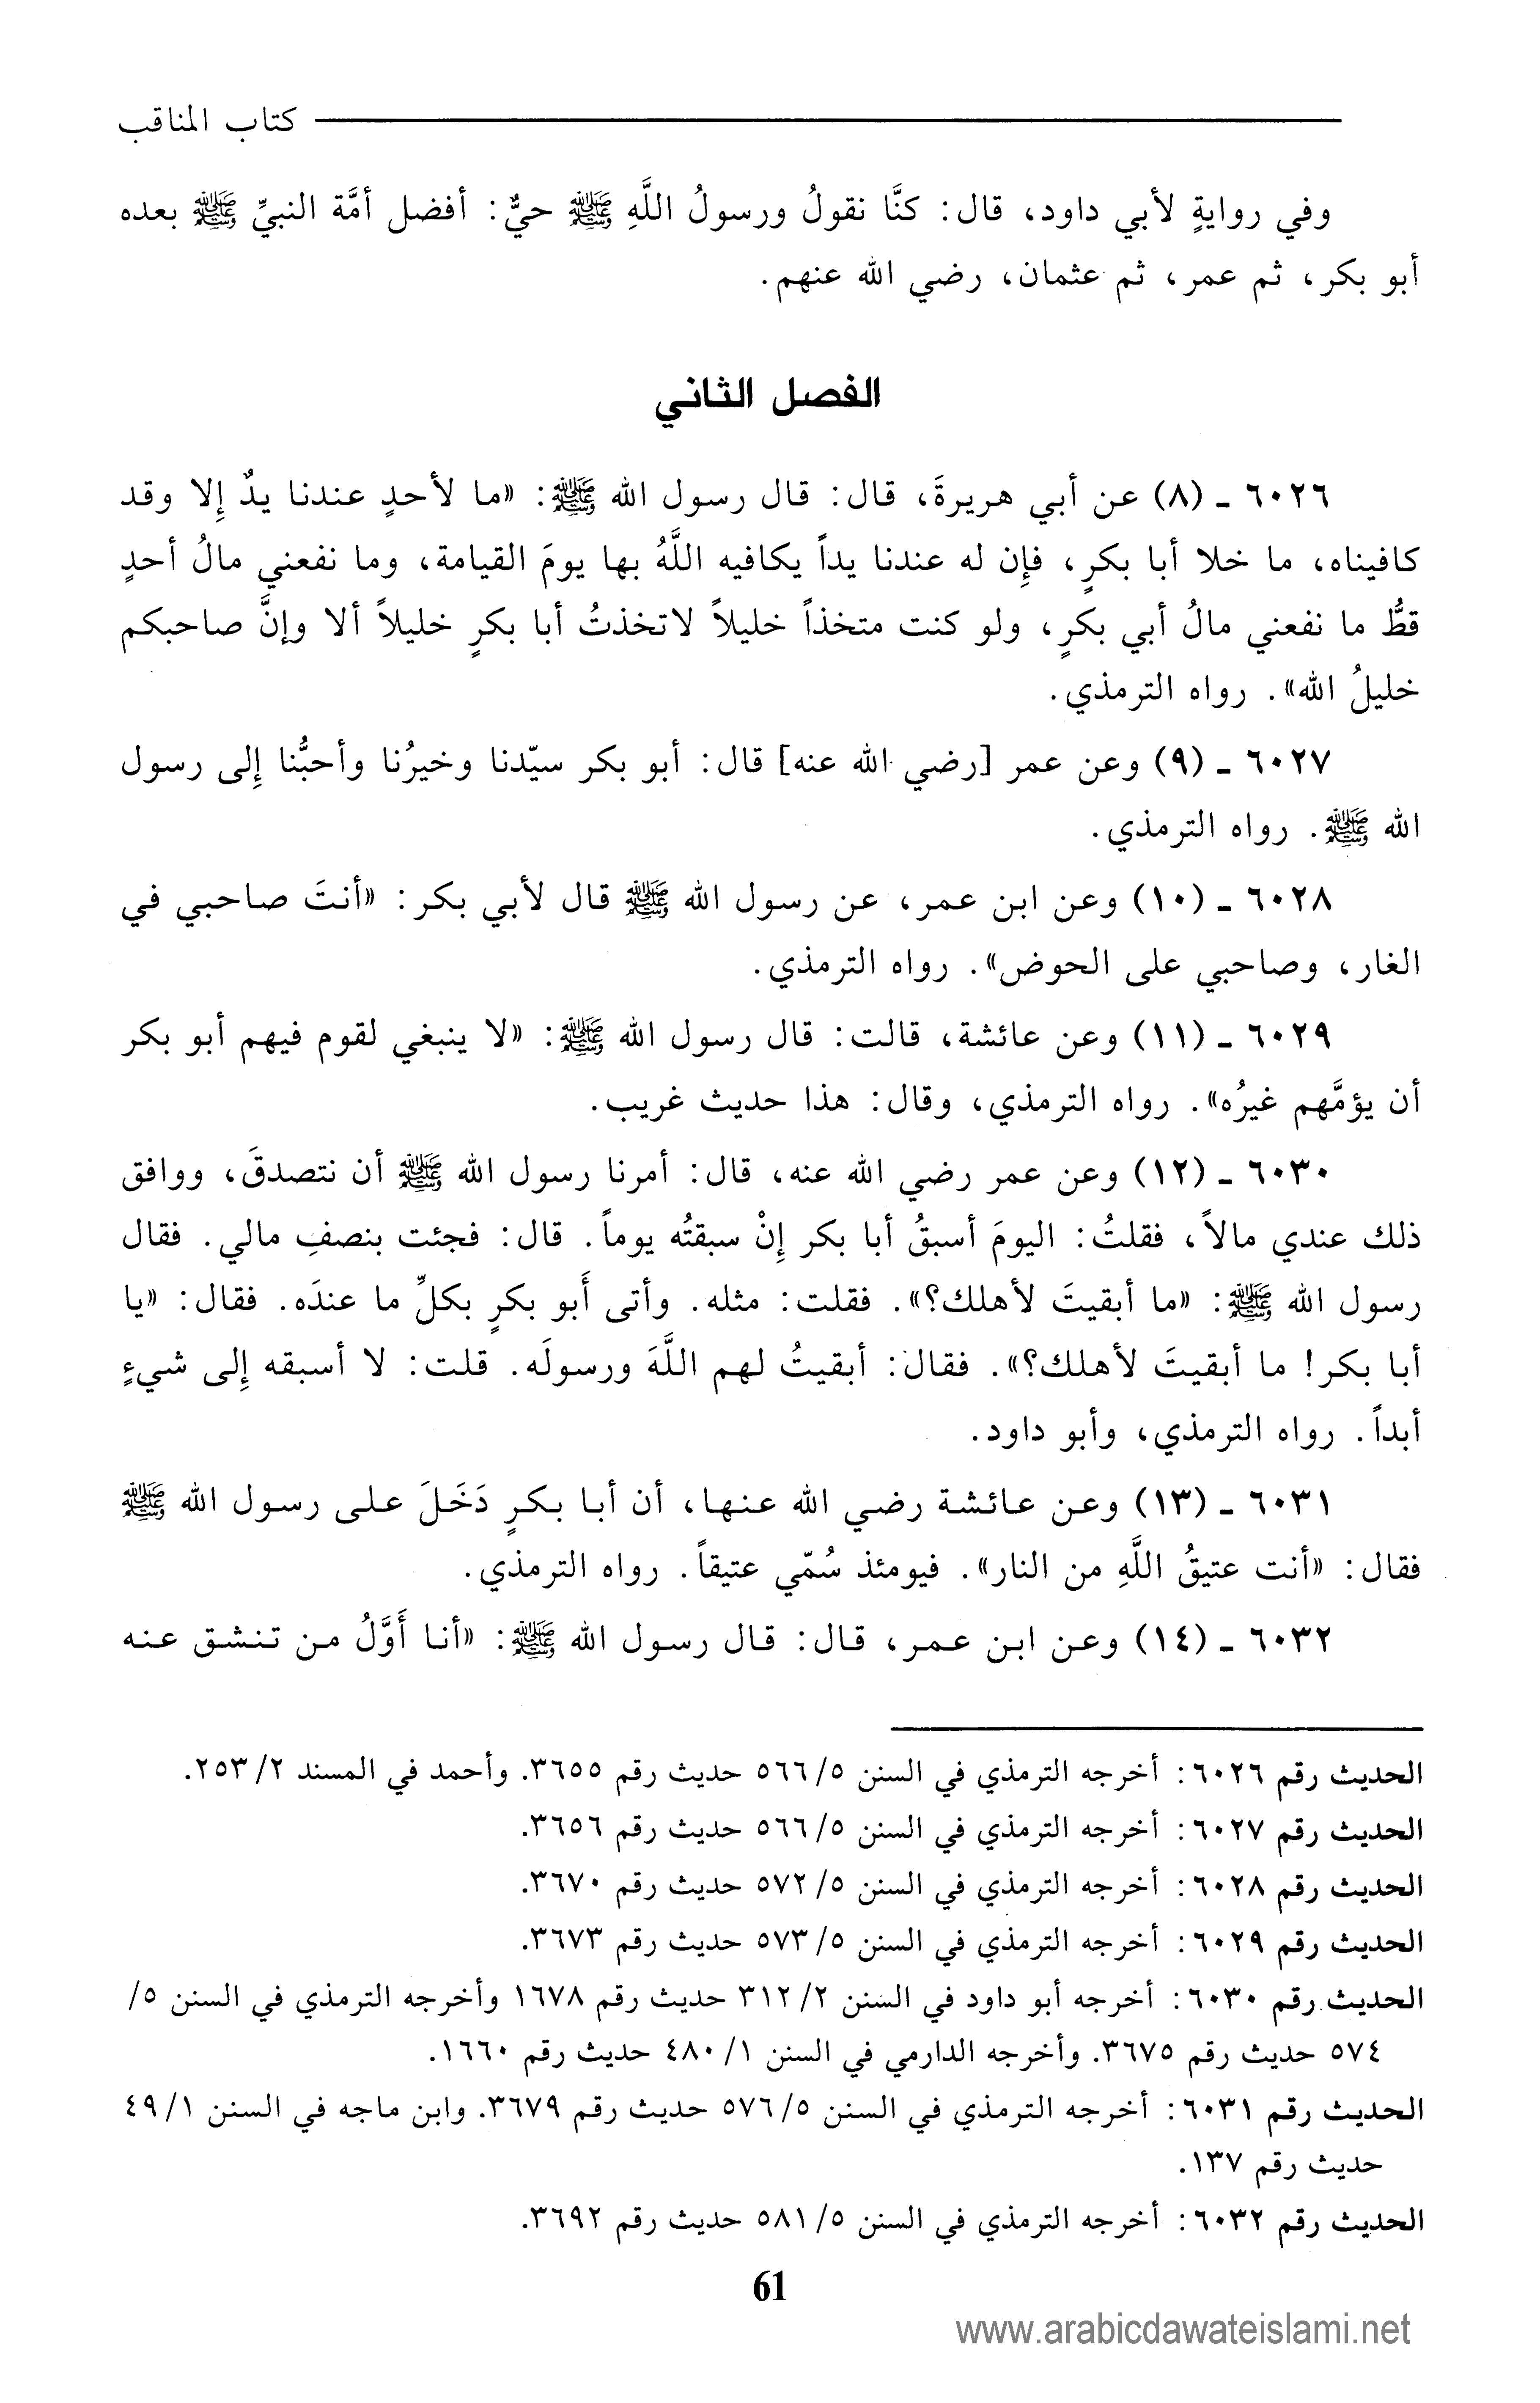 كتاب المناقب
وفي روايةٍ لأبي داود، قال: كنَّا نقولُ ورسولُ اللَّهِ ﷺ حيٌّ: أفضل أمَّة النبيِّ ﷺ بعده
أبو بكر، ثم عمر، ثم عثمان، رضي الله عنهم.
الفصل الثاني
٦٠٢٦ ـ (٨) عن أبي هريرةَ، قال: قال رسول الله ﷺ: «ما لأحدٍ عندنا يدٌ إِلا وقد
كافيناه، ما خلا أبا بكرٍ، فإِن له عندنا يداً يكافيه اللَّهُ بها يومَ القيامة، وما نفعني مالُ أحدٍ
قطُّ ما نفعني مالُ أبي بكرٍ، ولو كنت متخذاً خليلاً لاتخذتُ أبا بكرٍ خليلاً ألا وإنَّ صاحبكم
خليلُ الله». رواه الترمذي.
٦٠٢٧ ـ (٩) وعن عمر [رضي الله عنه] قال: أبو بكر سيّدنا وخيرُنا وأحبُّنا إِلى رسول
الله ﷺ. رواه الترمذي.
٦٠٢٨ ـ (١٠) وعن ابن عمر، عن رسول الله ﷺ قال لأبي بكر: «أنتَ صاحبي في
الغار، وصاحبي على الحوض». رواه الترمذي.
٦٠٢٩ ـ (١١) وعن عائشة، قالت: قال رسول الله ﷺ: «لا ينبغي لقوم فيهم أبو بكر
أن يؤمَّهم غيرُه». رواه الترمذي، وقال: هذا حديث غريب.
٦٠٣٠ ـ (١٢) وعن عمر رضي الله عنه، قال: أمرنا رسول الله ﷺ أن نتصدقَ، ووافق
ذلك عندي مالاً، فقلتُ: اليومَ أسبقُ أبا بكر إِنْ سبقتُه يوماً. قال: فجئت بنصفِ مالي. فقال
رسول الله ﷺ: «ما أبقيتَ لأهلك؟». فقلت: مثله. وأتى أَبو بكرٍ بكلِّ ما عندَه. فقال: «يا
أبا بكر! ما أبقيتَ لأهلك؟». فقال: أبقيتُ لهم اللَّهَ ورسولَه. قلت: لا أسبقه إِلى شيءٍ
أبداً. رواه الترمذي، وأبو داود.
٦٠٣١ ـ (١٣) وعن عائشة رضي الله عنها، أن أبا بكرٍ دَخَلَ على رسول الله ﷺ
فقال: «أنت عتيقُ اللَّهِ من النار». فيومئذ سُمّي عتيقاً. رواه الترمذي.
٦٠٣٢ ـ (١٤) وعن ابن عمر، قال: قال رسول الله ﷺ: «أنا أَوَّلُ من تنشق عنه
الحديث رقم ٦٠٢٦: أخرجه الترمذي في السنن ٥/ ٥٦٦ حديث رقم ٣٦٥٥. وأحمد في المسند ٢/ ٢٥٣.
الحديث رقم ٦٠٢٧: أخرجه الترمذي في السنن ٥/ ٥٦٦ حديث رقم ٣٦٥٦.
الحديث رقم ٦٠٢٨: أخرجه الترمذي في السنن ٥/ ٥٧٢ حديث رقم ٣٦٧٠.
الحديث رقم ٦٠٢٩: أخرجه الترمذي في السنن ٥/ ٥٧٣ حديث رقم ٣٦٧٣.
الحديث رقم ٦٠٣٠: أخرجه أبو داود في السنن ٢/ ٣١٢ حديث رقم ١٦٧٨ وأخرجه الترمذي في السنن ٥/
٥٧٤ حديث رقم ٣٦٧٥. وأخرجه الدارمي في السنن ١/ ٤٨٠ حديث رقم ١٦٦٠.
الحديث رقم ٦٠٣١: أخرجه الترمذي في السنن ٥/ ٥٧٦ حديث رقم ٣٦٧٩. وابن ماجه في السنن ١/ ٤٩
حديث رقم ١٣٧.
الحديث رقم ٦٠٣٢: أخرجه الترمذي في السنن ٥/ ٥٨١ حديث رقم ٣٦٩٢.
61
www.arabicdawateislami.net